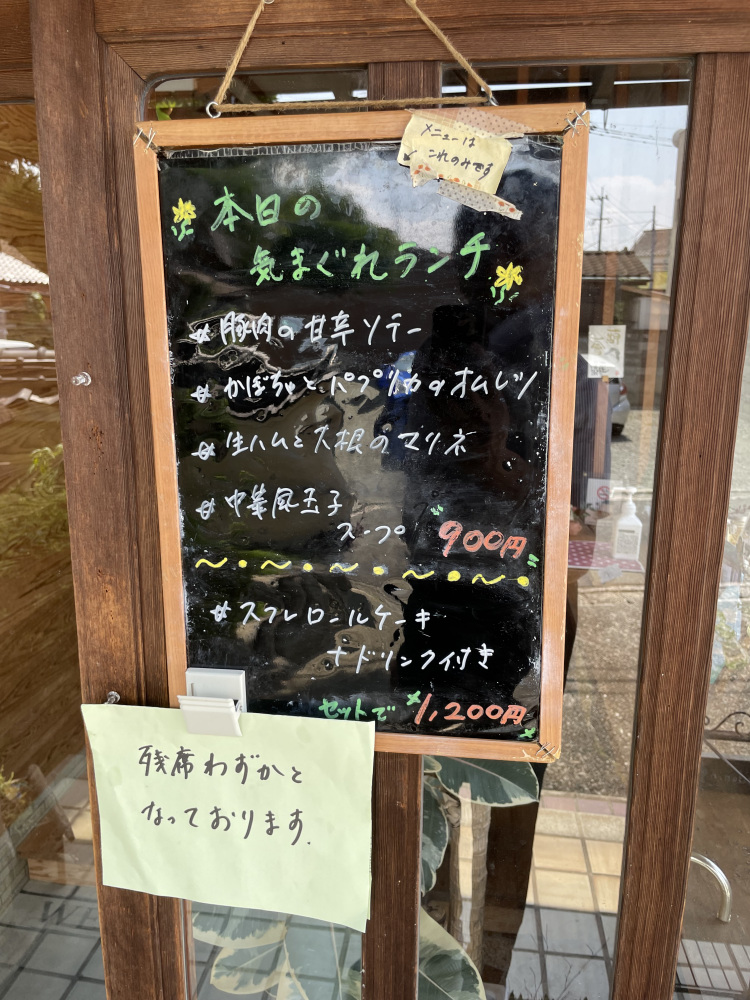 メニューは
これのみです
本日の
気まぐれランチ
# 豚肉の甘辛ソテー
# かぼちゃとパプリカのオムレツ
# 生ハムと大根のマリネ
# 中華風玉子
スープ 900円
～・～・～・～・～・
# スフレロールケーキ
+ドリンク付き
セットで 1,200円
残席わずかと
なっております.